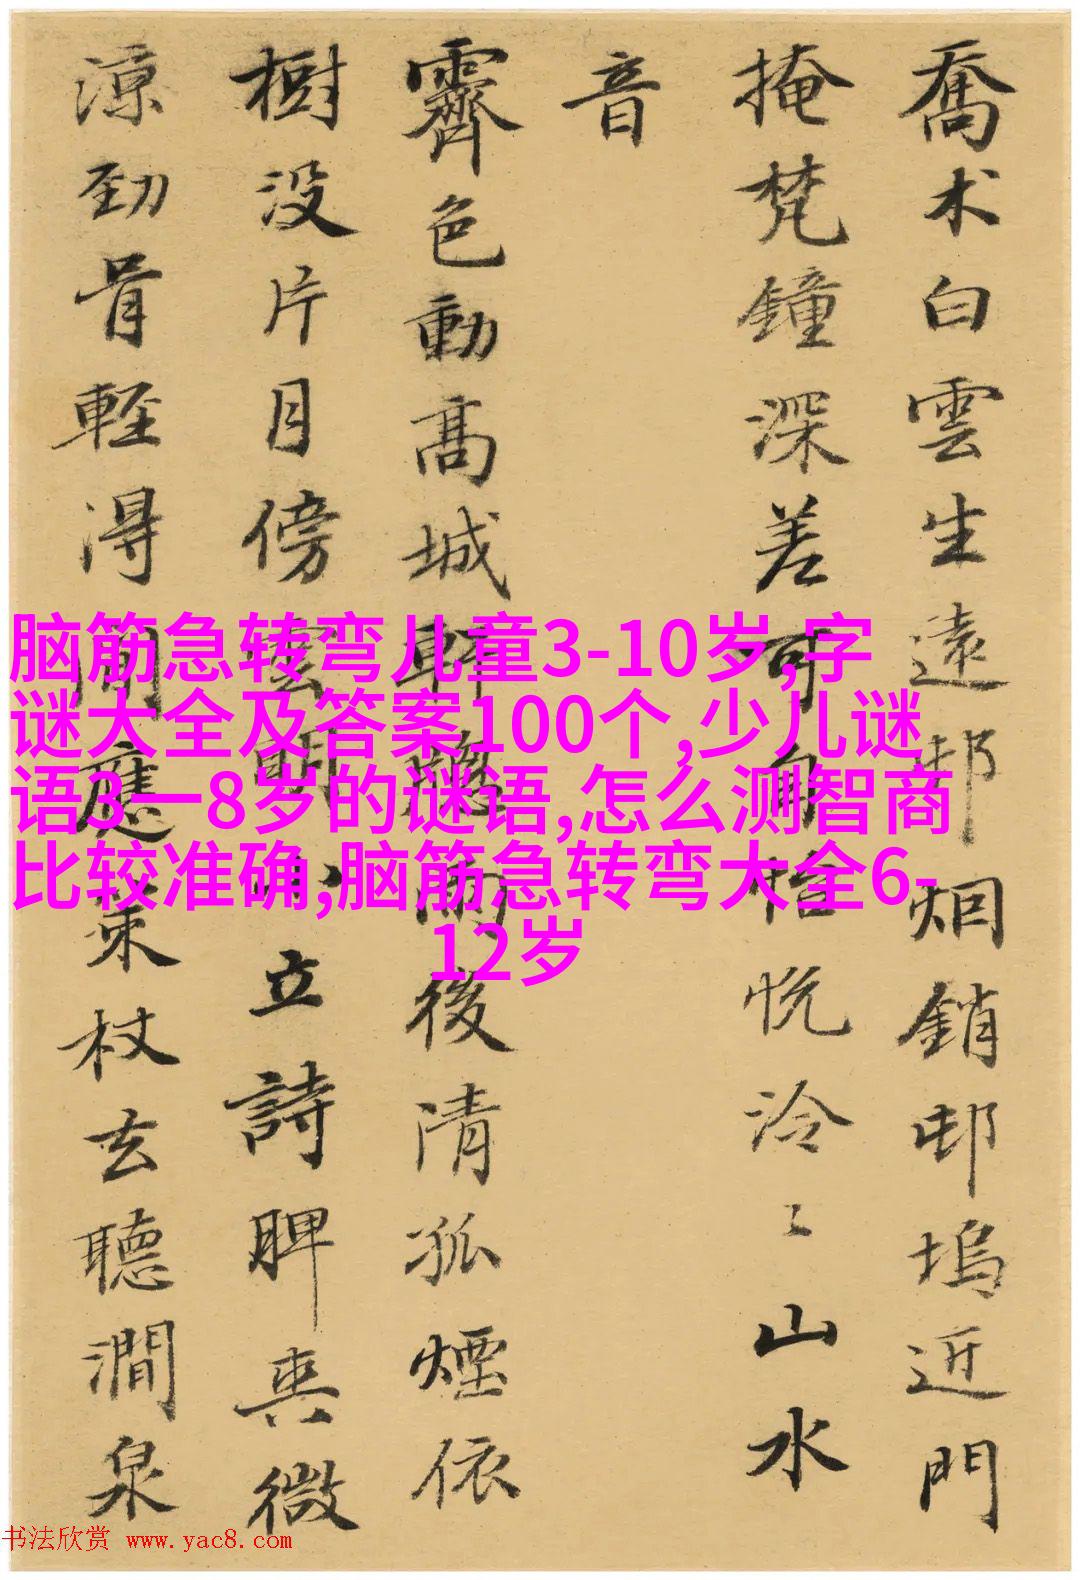 喬木白雲生遠邨烟銷邨塢近門
掩梵鐘深差可自怡悅泠〻山水
音
霽色動高城聽雨後清孤煙依
樹没片月傍雲明小立詩脾爽微
涼勁骨輕得閒應策杖去聽澗泉
脑筋急转弯儿童3-10岁,字
谜大全及答案100个,少儿谜
语3一8岁的谜语,怎么测智商
比较准确,脑筋急转弯大全6-
12岁
书法欣赏 www.yac8.com